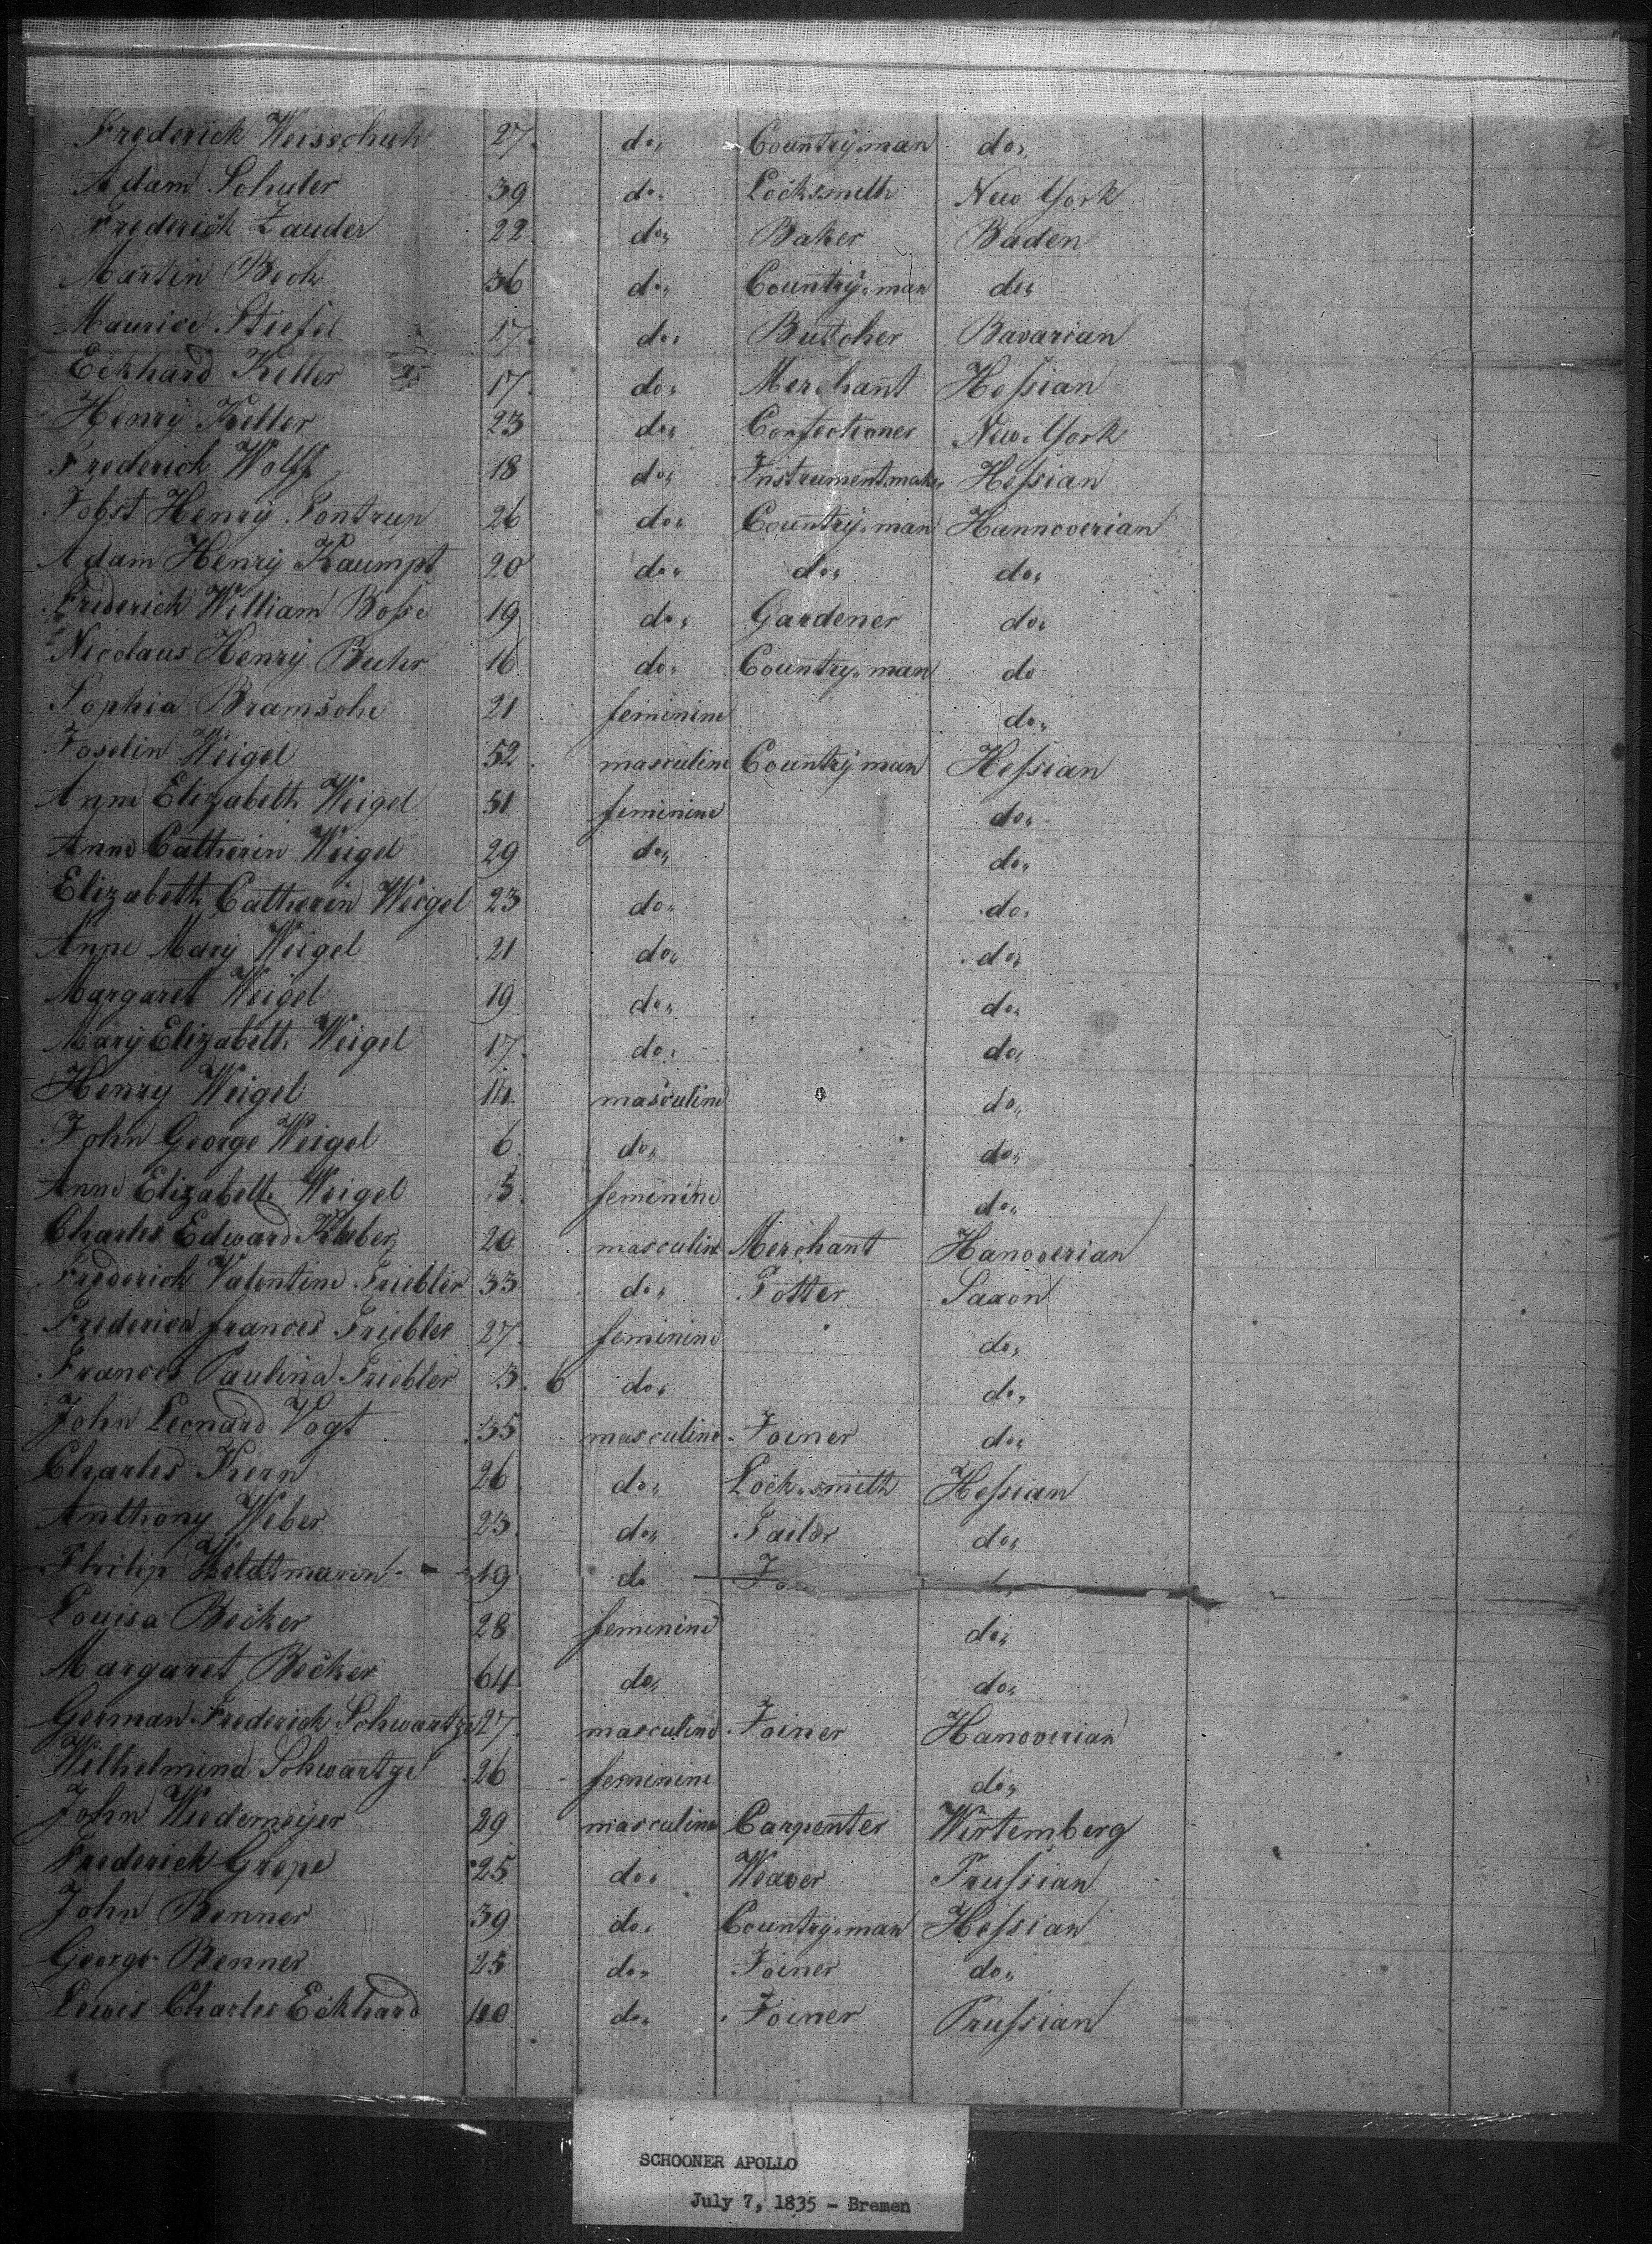 Frederick Weisschuh 27. do. Countryman do.
Adam Schuler 39 do. Locksmith New York
Frederick Zauder 22. do. Baker Baden
Martin Bock 36 do. Country-man do.
Maurice Stiefel 17. do. Butcher Bavarian
Eckhard Keller 25 17. do. Merchant Heſsian
Henry Keller 23 do. Confectioner New-York
Frederick Wolff 18 do. Instrumentmaker Heſsian
Jobst Henry Pontrup 26 do. Country-man Hannoverian
Adam Henry Kaumpt 20 do. do. do.
Frederick William Boſse 19 do. Gardener do.
Nicolaus Henry Buhr 16 do. Country-man do
Sophia Bramsche 21 feminine do.
Joselin Weigel 52. masculine Countryman Heſsian
Anne Elizabeth Weigel 51 feminine do.
Anne Catherin Weigel 29 do. do.
Elizabeth Catherin Weigel 23 do. do.
Anne Mary Weigel 21 do. do.
Margaret Weigel 19 do. do.
Mary Elizabeth Weigel 17. do. do.
Henry Weigel 14. masculine do.
John George Weigel 6. do. do.
Anne Elizabeth Weigel 5. feminine do.
Charles Edward Kluber 20 masculine Merchant Hanoverian
Frederick Valentine Triebler 33 do. Potter Saxon
Frederica frances Triebler 27. feminine do.
Frances Paulina Triebler 3. 6 do. do.
John Leonard Vogt 35 masculine Joiner do.
Charles Kern 26 do. Lock-smith Heſsian
Anthony Weber 23. do. Tailor do.
Philip 19 do
Louisa Becker 28 feminine do.
Margaret Becker 64 do. do.
German Frederick Schwartze 27. masculine Joiner Hanoverian
Wilhelmina Schwartze 26 feminine do.
John Wiedemeyer 29 masculine Carpenter Wirtemberg
Frederick Grope 25 do. Weaver Pruſsian
John Benner 39 do. Country-man Heſsian
George Benner 25 do. Joiner do.
Lewis Charles Eckhard 40 do. Joiner Pruſsian
SCHOONER APOLLO
July 7, 1835 - Bremen